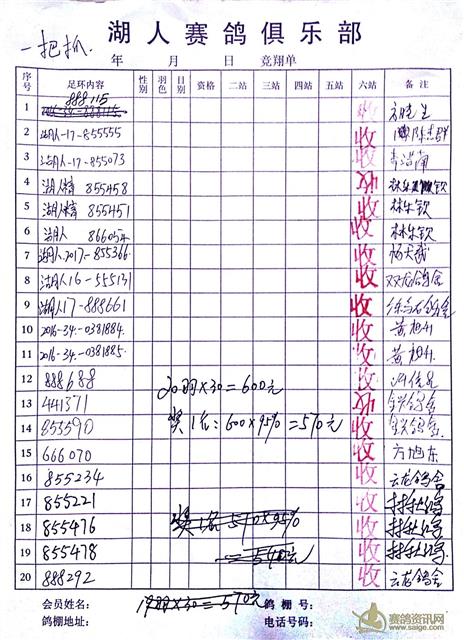 湖人赛鸽俱乐部
一把抓
年 月 日 竞翔单
序号 足环内容 性别 羽色 日别 资格 一站 二站 三站 四站 五站 六站 备注
1 888115 收
2 湖人-17-855555 收
3 湖人-17-855073 收
4 湖人 855458 收 林乐钦
5 湖人 855451 收 林乐钦
6 湖人 866054 收 林乐钦
7 湖人2017-855366 收 杨大成
8 湖人16-555131 收 双龙鸽舍
9 湖人17-888661 收
10 2016-34-0381884 收 黄旭升
11 2016-34-0381885 收 黄旭升
12 888688 20羽×30=600元 收
13 441371 收
14 853590 奖1名:600×95%=570元 收
15 666070 收 方旭东
16 855234 收 云龙鸽舍
17 855221 收
18 855476 奖1名 570×95% 收
19 855478 =540元 收
20 888292 收 云龙鸽舍
会员姓名: 19羽×30=570元 鸽棚号:
鸽棚地址: 电话号码:
赛鸽资讯网
www.saige.com